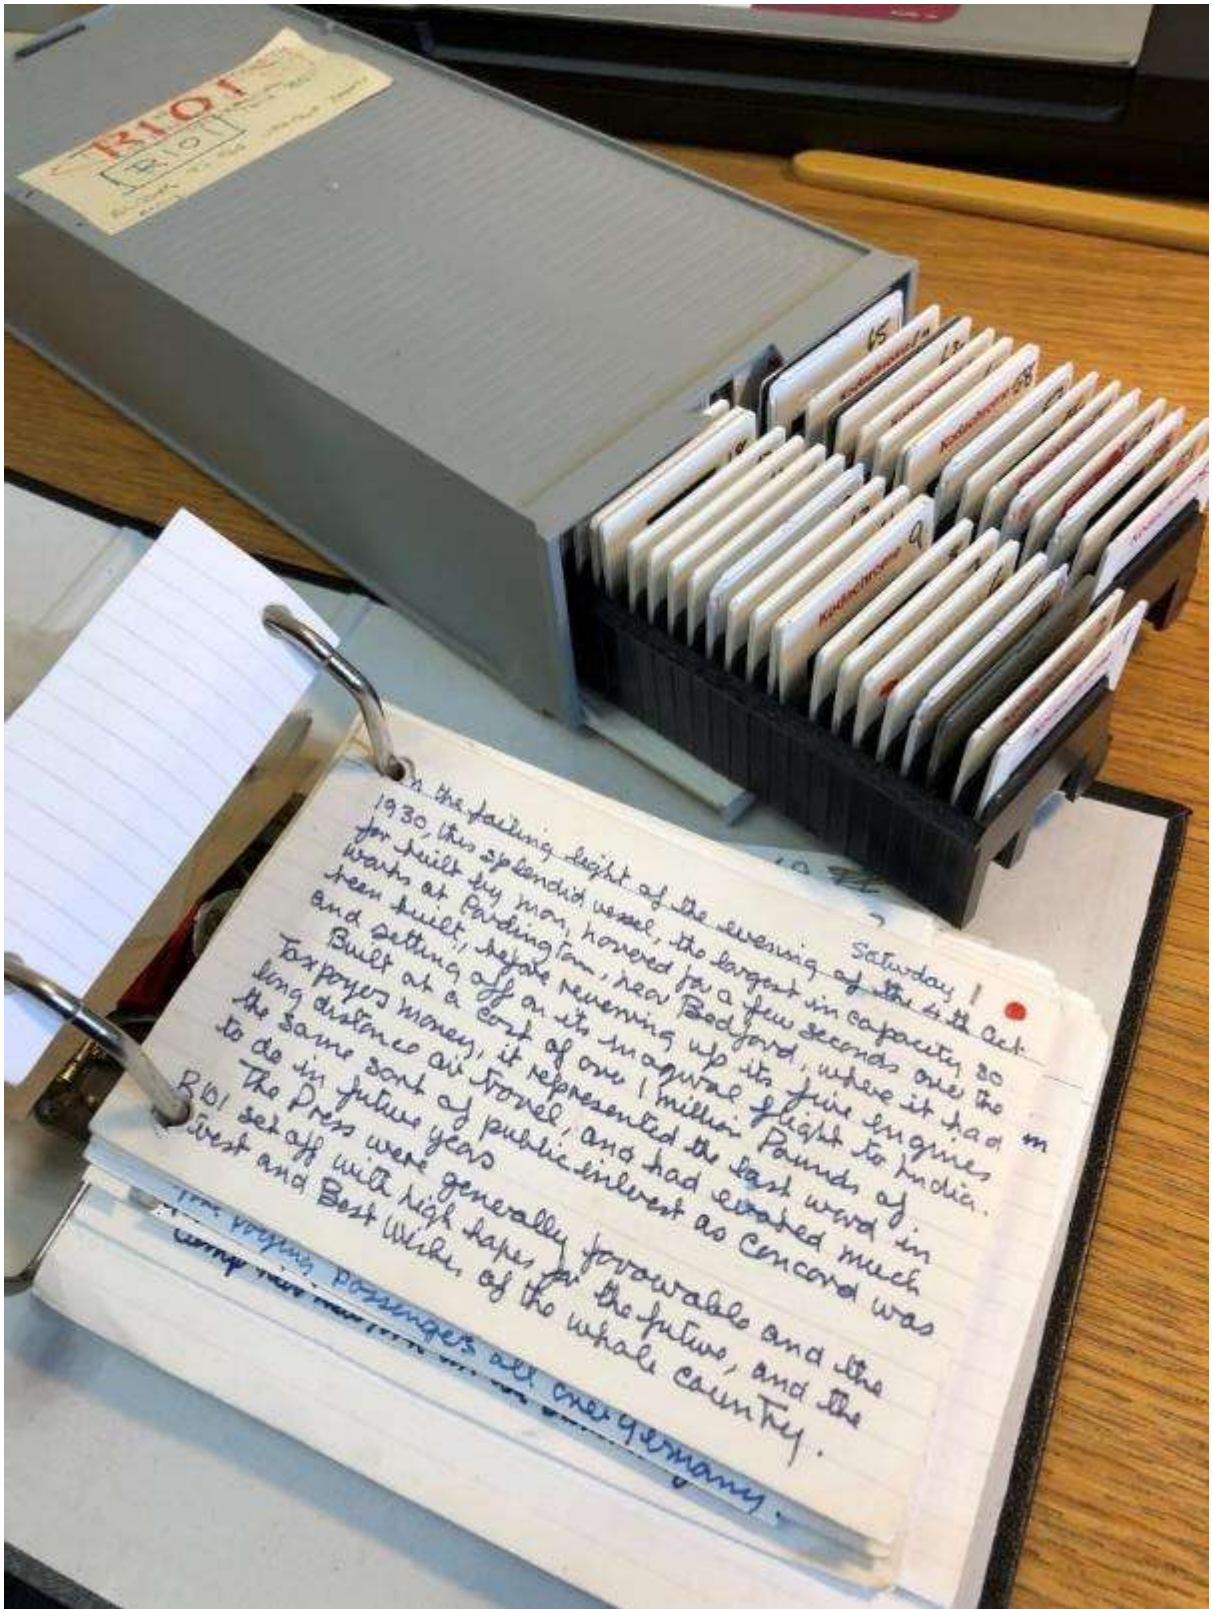 R101
R101
15
Kodachrome
Kodachrome
68
Kodachrome
18
9
Kodachrome
Saturday 1
In the failing light of the evening of the 4th Oct
1930, this splendid vessel, the largest in capacity so
far built by man, hovered for a few seconds over the
works at Cardington, near Bedford, where it had
been built, before revving up its five engines
and setting off on its flight to India.
Built at a cost of one 1 million Pounds of
Taxpayers money, it represented the last word in
long distance air travel, and had much
the same sort of public interest as Concord was
to do in future years
The Press were generally favourable and the
R101 set off with high hopes for the future, and the
and Best Wishes of the whole country.
passengers all over Germany.